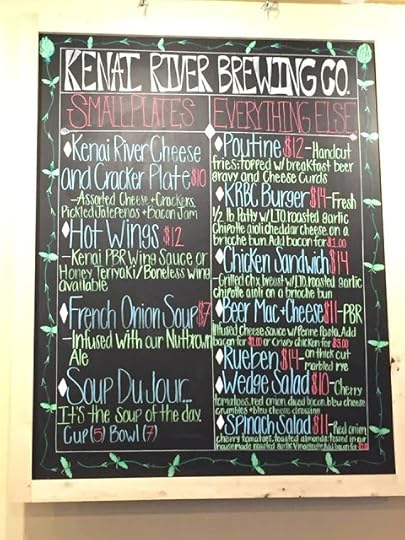 KENAI RIVER BREWING CO.
SMALL PLATES
Kenai River Cheese
and Cracker Plate $10
- Assorted Cheese + Crackers,
Pickled Jalepenas + Bacon Jam
Hot Wings $12
- Kenai PBR Wing Sauce or
Honey Terryaki / Boneless wing
available
French Onion Soup $7
- Infused with our Nutbrown
Ale
Soup Du Jour...
It's the soup of the day.
Cup (5) Bowl (7)
EVERYTHING ELSE
Poutine $12 - Handcut
fries, topped w/ breakfast beer
gravy and Cheese Curds
KRBC Burger $14 - Fresh
1/2 lb Patty w/ LTO, roasted garlic
Chipotle aioli cheddar cheese on a
brioche bun. Add bacon for $1.00
Chicken Sandwich $14
- Grilled chx breast w/ LTO, roasted garlic
Chipotle aioli on a brioche bun
Beer Mac + Cheese $11 - PBR
Infused Cheese sauce w/ Penne Pasta. Add
bacon for $1.00 or Crispy chicken for $3.00
Rueben $14 - on thick cut
marbled rye
Wedge Salad $10 - Cherry
tomatoes, red onion, diced bacon, bleu cheese
crumbles + bleu cheese dressing
Spinach Salad $11 - Red onion,
cherry tomatoes, toasted almonds, tossed in our
house made roasted garlic Vinaigrette. Add bacon for